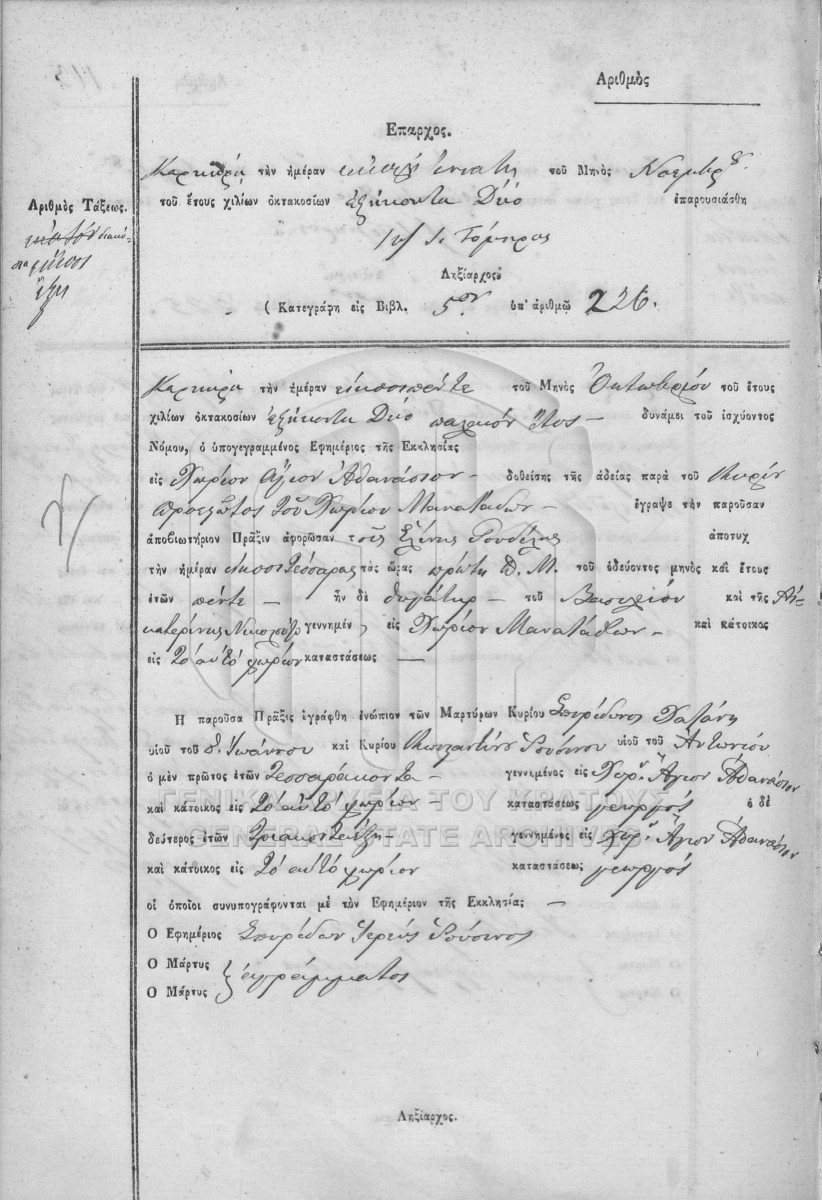 Ἀριθμὸς
Ἔπαρχος.
Κέρκυρᾳ τὴν ἡμέραν εἰκοστὴ ἐννάτη τοῦ Μηνὸς Νοεμβρ
Ἀριθμὸς Τάξεως.
τοῦ ἔτους χιλίων ὀκτακοσίων ἑξήκοντα Δύο ἐπαρουσιάσθη
ἑκατὸν διακό-
σια εἴκοσι
ἕξη
Ληξίαρχος
( Κατεγράφη εἰς Βιβλ. 5ον ὑπ' ἀριθμῷ 226.
Κέρκυρα τὴν ἡμέραν εἰκοσιπέντε τοῦ Μηνὸς Ὀκτωβρίου τοῦ ἔτους
χιλίων ὀκτακοσίων ἑξήκοντα Δύο παλαιὸν ἔτος – δυνάμει τοῦ ἰσχύοντος
Νόμου, ὁ ὑπογεγραμμένος Ἐφημέριος τῆς Ἐκκλησίας
εἰς Χωρίον Ἅγιον Ἀθανάσιον – δοθείσης τῆς ἀδείας παρὰ τοῦ Κυρίου
Προεστῶτος τοῦ Χωρίου Μανατάδων – ἔγραψε τὴν παροῦσαν
ἀποβιωτήριον Πρᾶξιν ἀφορῶσαν τῆς Ἑλένης Ῥουβέλης ἀποτυχ
τὴν ἡμέραν εἰκοσιτέσσαρας τὰς ὥρας πρώτη Π. Μ. τοῦ ὁδεύοντος μηνὸς καὶ ἔτους
ἐτῶν πέντε – ἦν δὲ θυγάτηρ – τοῦ Βασιλείου καὶ τῆς Αἰ-
κατερίνης γεννημέν εἰς Χωρίον Μανατάδων – καὶ κάτοικος
εἰς τὸ αὐτὸ χωρίον καταστάσεως —
Ἡ παροῦσα Πρᾶξις ἐγράφθη ἐνώπιον τῶν Μαρτύρων Κυρίου Σπυρίδωνος
υἱοῦ τοῦ Ἰωάννου καὶ Κυρίου Κωνσταντίνου Ῥούσινου υἱοῦ τοῦ Ἀντωνίου
ὁ μὲν πρῶτος ἐτῶν Τεσσαράκοντα – γεννημένος εἰς Χωρ. Ἅγιον Ἀθανάσιον
καὶ κάτοικος εἰς τὸ αὐτὸ χωρίον – καταστάσεως γεωργός ὁ δὲ
δεύτερος ἐτῶν Τριακονταέξη – γεννημένος εἰς Χωρ. Ἅγιον Ἀθανάσιον
καὶ κάτοικος εἰς τὸ αὐτὸ χωρίον καταστάσεως γεωργός
οἱ ὁποῖοι συνυπογράφονται μὲ τὸν Ἐφημέριον τῆς Ἐκκλησίας; —
Ὁ Ἐφημέριος Σπυρίδων Ἱερεὺς Ῥούσινος
Ὁ Μάρτυς
Ὁ Μάρτυς } ἀγράμματος
Ληξίαρχος.
ΓΕΝΙΚΑ ΑΡΧΕΙΑ ΤΟΥ ΚΡΑΤΟΥΣ
GENERAL STATE ARCHIVES